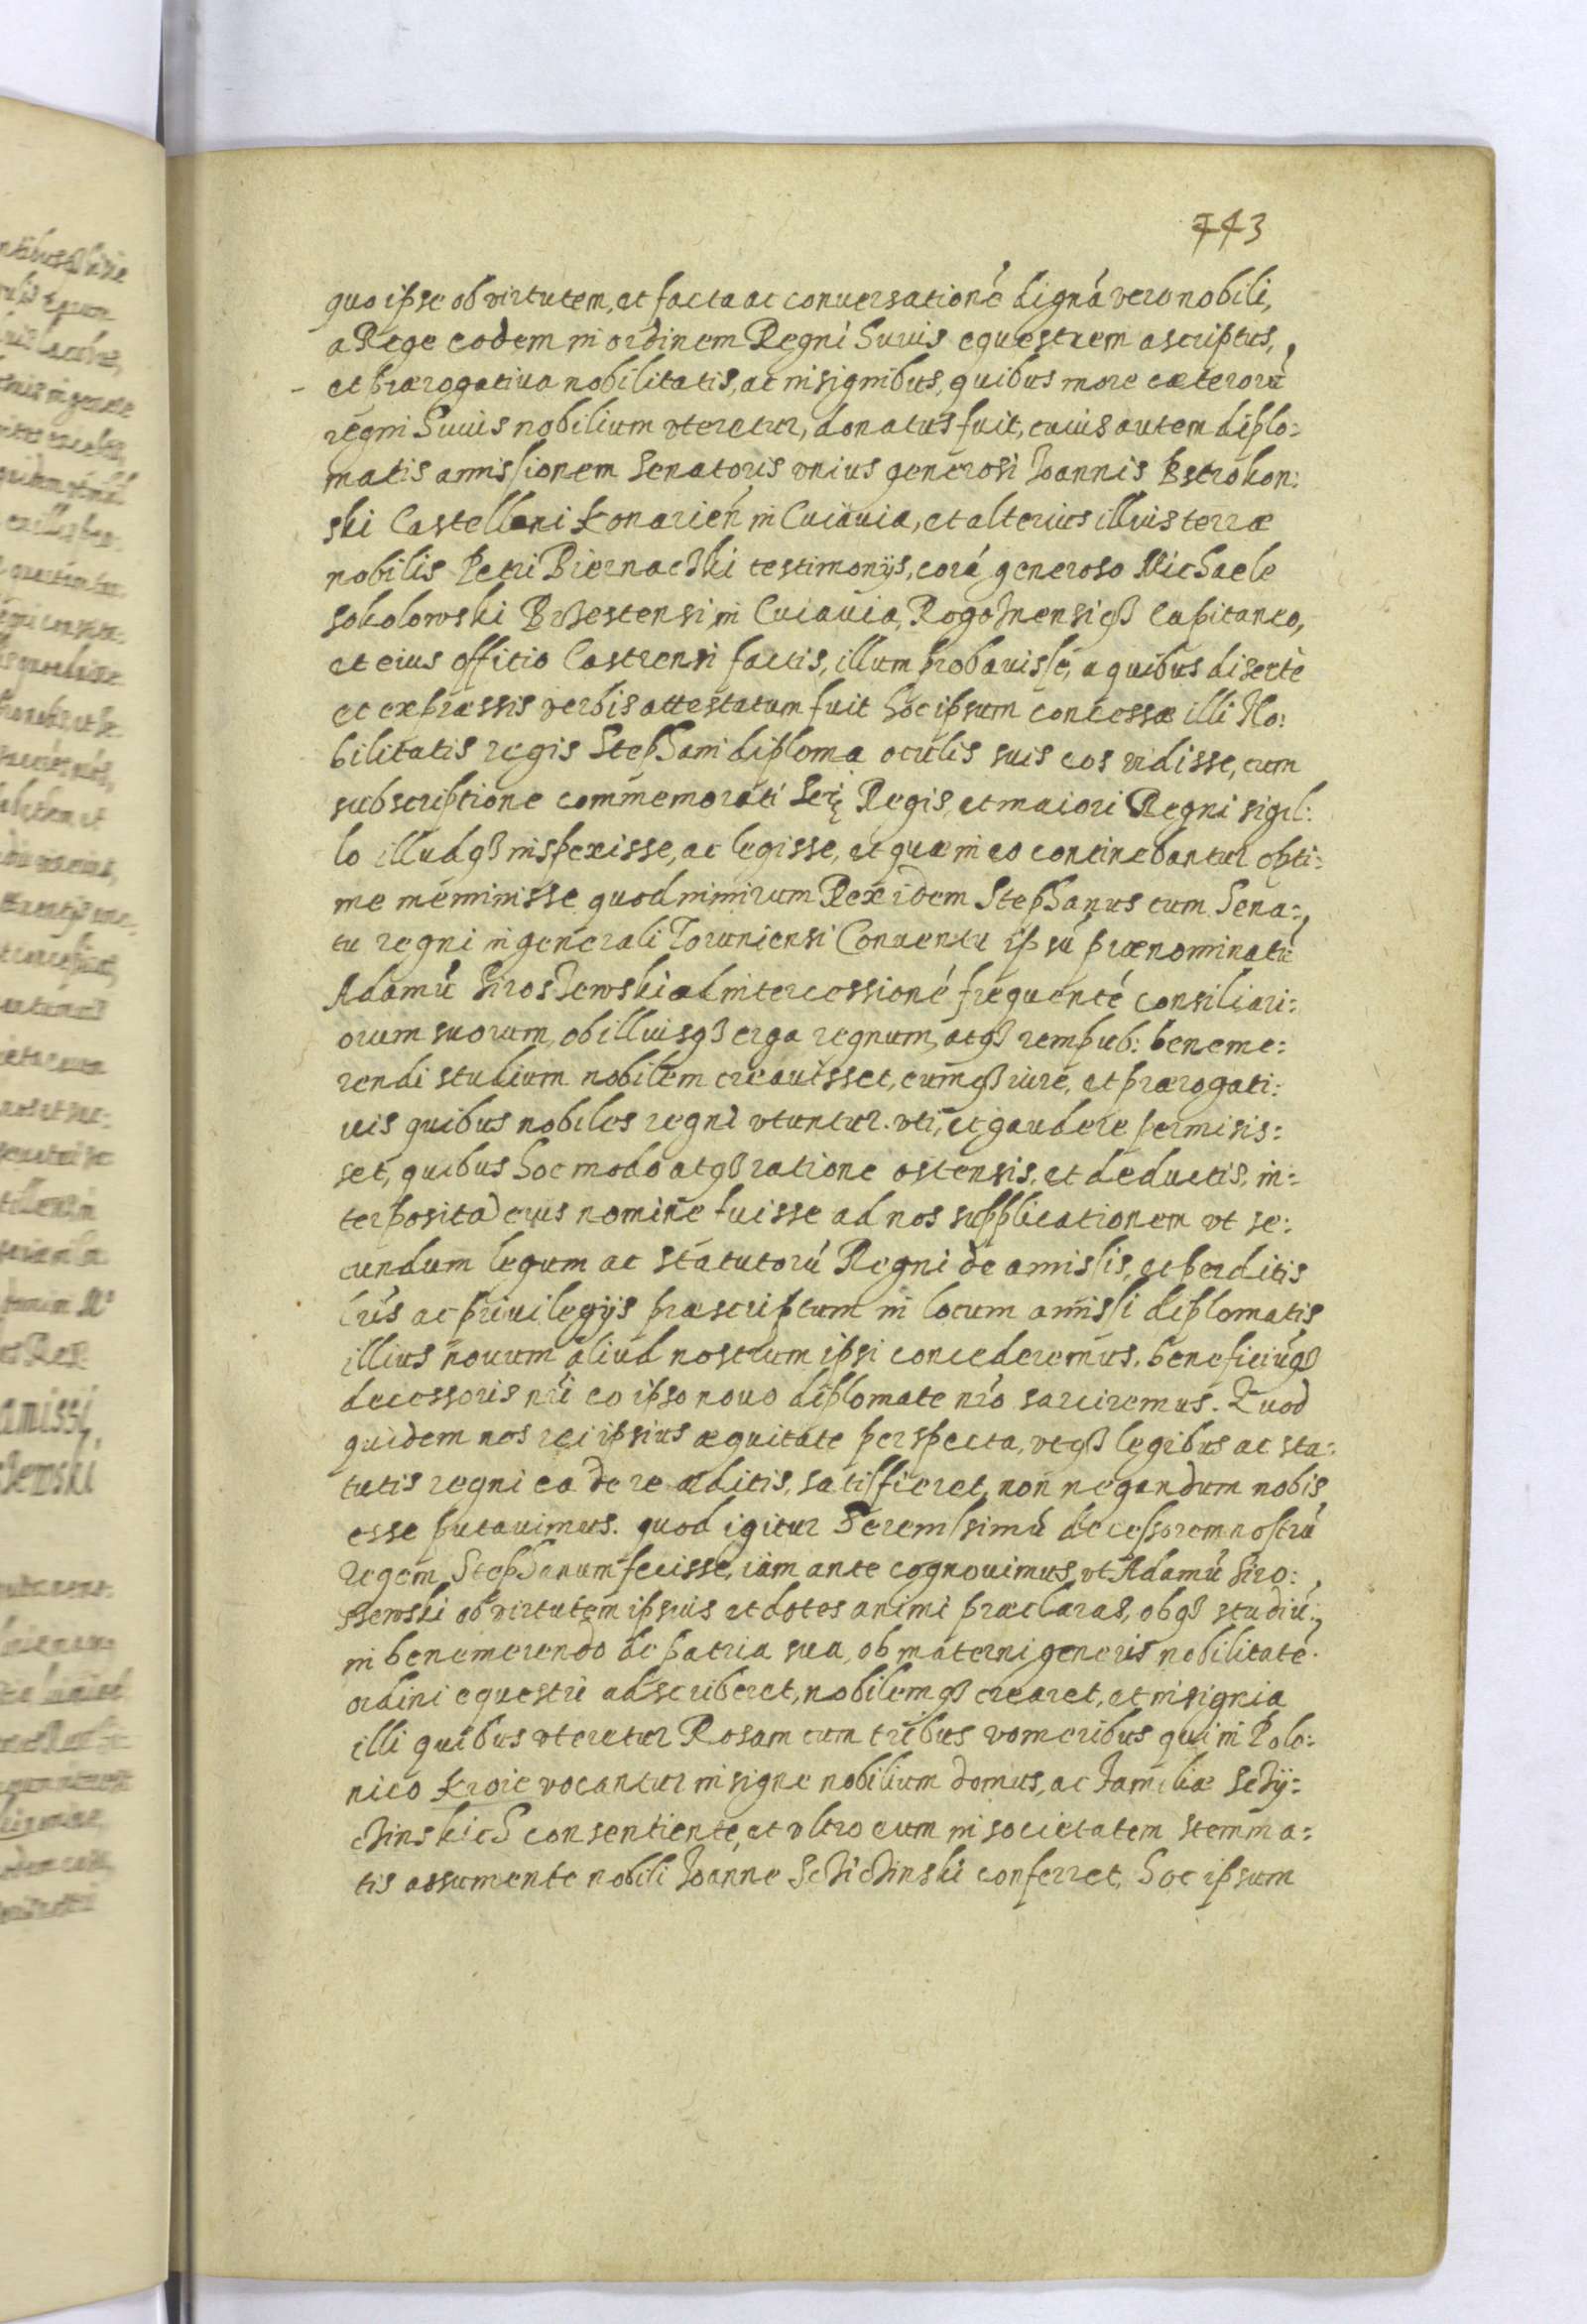 743
quo ipse ob virtutem, et facta ac conuersationé digná vero nobili,
a Rege eodem in ordinem Regni huius equestrem ascriptus,
et prærogatiua nobilitatis, ac insignibus, quibus more cæterorú
regni huius nobilium vteretur, donatus fuit, cuius autem diplo:
matis amissionem Senatoris vnius generosi Joannis Bstrokon:
ski Castellani Konarień in Cuiauia, et alterius illius terræ
nobilis Petri Biernaczki testimonijs, corá generoso Michaele
sokolowski Brzestensi, in Cuiauia, Rogoznensiq3 Capitaneo,
et eius offitio Castrensi factis, illum probauisse, a quibus disertè
et expræssis verbis attestatum fuit hoc ipsum concessæ illi No:
bilitatis regis Stephani diploma oculis suis eos vidisse, cum
subscriptione commemorati Serę Regis, et maiori Regni sigil:
lo illudq3 inspexisse, ac legisse, et quæ in eo continebantur opti:
me meminisse quod nimirum Rex idem Stephanus cum Sena:
tu regni in generali Toruniensi Conuentu ipsú prænominatú
Adamú Siroszewski ad intercessioné frequenté consiliari:
orum suorum, ob illiusq3 erga regnum, atq3 rempub: beneme:
rendi studium nobilem creauisset, eumq3 iure, et prærogati:
uis quibus nobiles regni vtuntur. vti, et gaudere permisis:
set, quibus hoc modo atq3 ratione ostensis, et deductis, in:
terposita eius nomine fuisse ad nos supplicationem vt se:
cundum legum ac statutorú Regni de amissis, et perditis
lris ac priuilegijs præscriptum in locum amissi diplomatis
illius nouum aliud nostrum ipsi concederemus, beneficiúq3
decessoris nri eo ipso nouo diplomate nro sarciremus. Quod
quidem nos rei ipsius æquitate perspecta, vtq3 legibus ac sta:
tutis regni ea de re æditis, satisfieret, non negandum nobis
esse putauimus. quod igitur Serenissimú decessorem nostrú
regem Stephanum fecisse, iam ante cognouimus, vt Adamú Siro:
szewski ob virtutem ipsius et dotes animi præclaras, obq3 studiú
in benemerendo de patria sua, ob materni generis nobilitaté
ordini equestri adscriberet, nobilemq3 crearet, et insignia
illi quibus vteretur Rosam cum tribus vomeribus qui in Polo:
nico kroie vocantur insigne nobilium domus, ac familiæ Sczy:
czinskich consentiente, et vltro eum in societatem stemma:
tis assumente nobili Joanne Scziczinski conferret, hoc ipsum